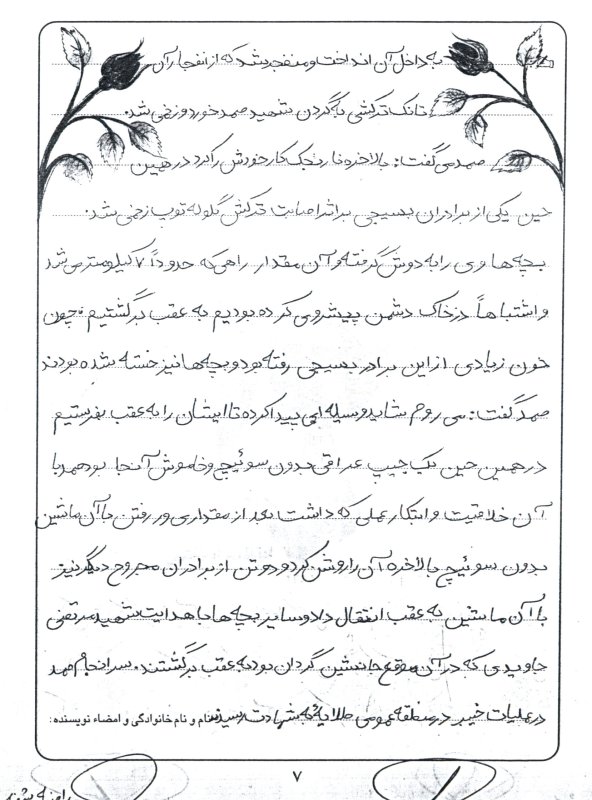 به داخل آن انداخت و منفجر شد که از انفجار آن
تانک ترکشی به گردن شهید صمد خورد و زخمی شد.
صمد می گفت: بالاخره نارنجک کار خودش را کرد در همین
حین یکی از برادران بسیجی بر اثر اصابت ترکش گلوله توپ زخمی شد.
بچه ها وی را به دوش گرفته و آن مقدار راهی که حدوداً ۷ کیلومتر می شد
و اشتباهاً در خاک دشمن پیشروی کرده بودیم به عقب برگشتیم. چون
خون زیادی از این برادر بسیجی رفته بود و بچه ها نیز خسته شده بودند
صمد گفت: می روم شاید وسیله ای پیدا کرده تا ایشان را به عقب بفرستیم
در همین حین یک جیپ عراقی بدون سوئیچ و خاموش آنجا بود صمد با
آن خلاقیت و ابتکار عملی که داشت بعد از مقداری ور رفتن با آن ماشین
بدون سوئیچ بالاخره آن را روشن کرد و دو تن از برادران مجروح دیگر نیز
با آن ماشین به عقب انتقال داد و سایر بچه ها با هدایت شهید مرتضی
جاویدی که در آن موقع جانشین گردان بود به عقب برگشتند. سرانجام صمد
در عملیات خیبر در منطقه عمومی طلائیه به شهادت رسید. نام و نام خانوادگی و امضاء نویسنده:
۷